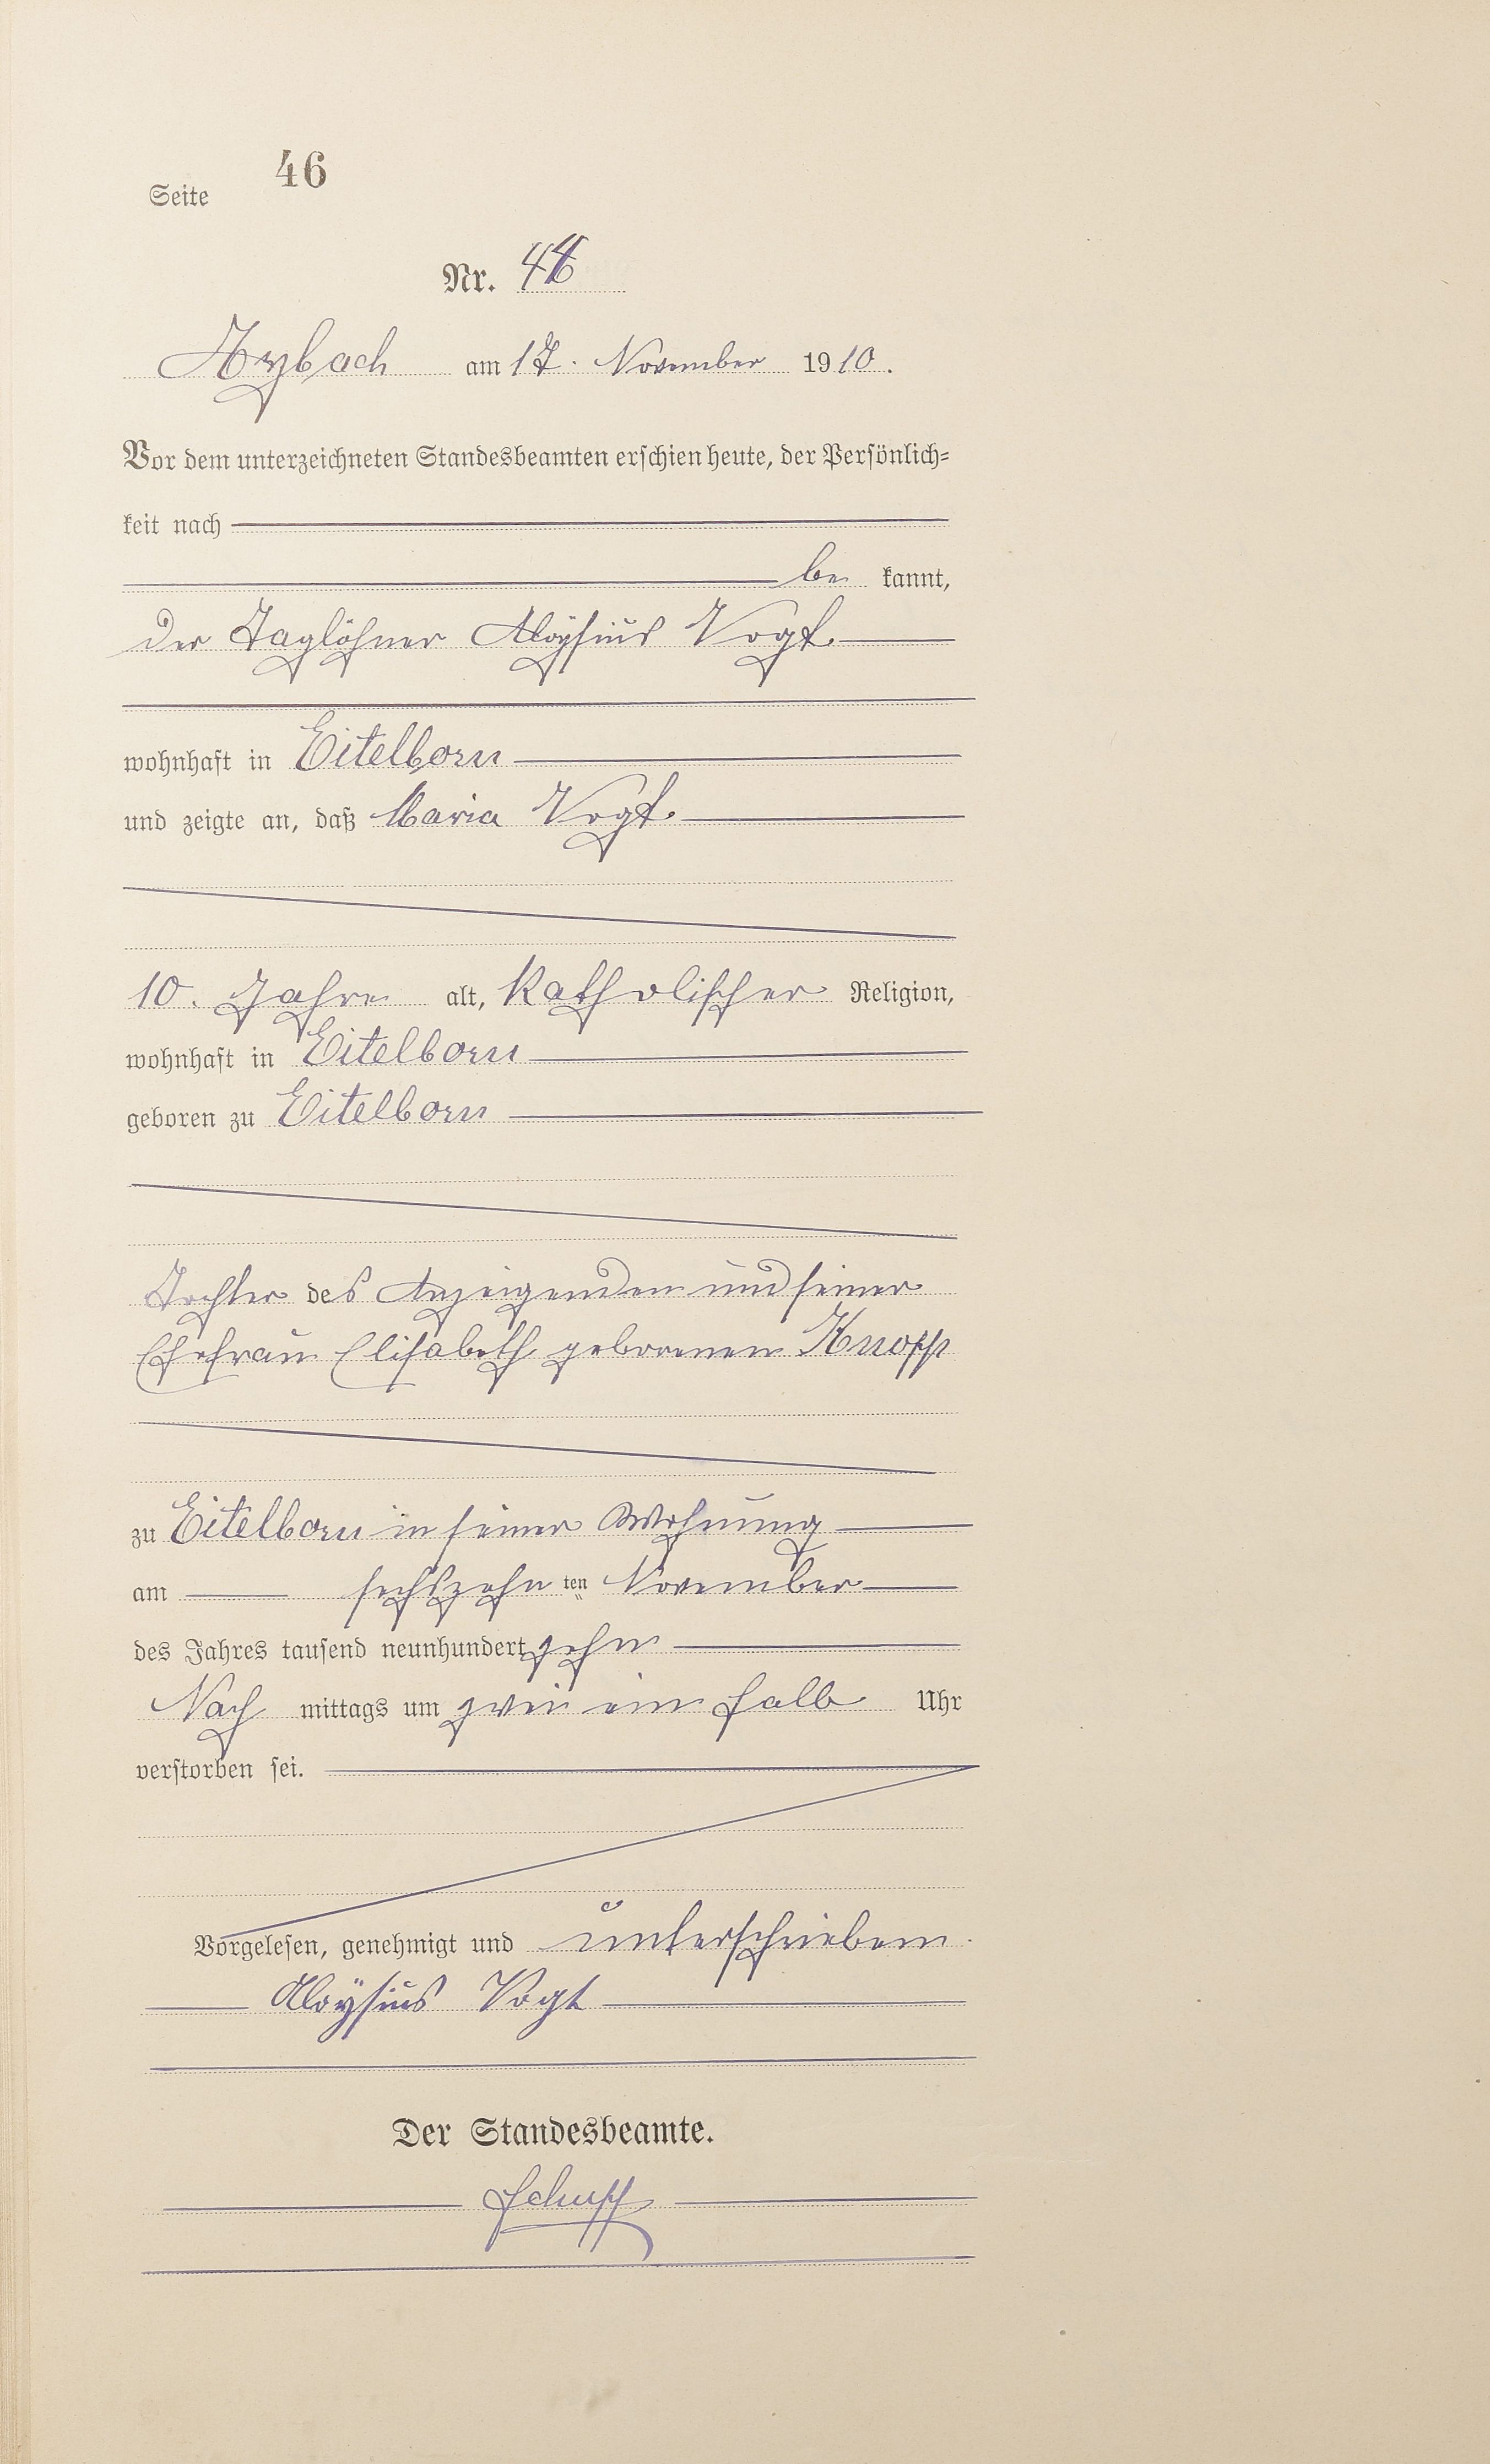 Seite 46
Nr.
Arzbach am 17. November 1910.
Vor dem unterzeichneten Standesbeamten erschien heute, der Persönlich=
keit nach
be kannt,
der Taglöhner Aloÿsius Vogt
wohnhaft in Eitelborn
und zeigte an, daß Maria Vogt
10. Jahre alt, katholischer Religion,
wohnhaft in Eitelborn
geboren zu Eitelborn
Tochter des Anzeigenden und seiner
Ehefrau Elisabeth geborenen Knopp
zu Eitelborn in seiner Wohnung
am sechszehn ten November
des Jahres tausend neunhundert zehn
Nach mittags um zwei ein halb Uhr
verstorben sei.
Vorgelesen, genehmigt und unterschrieben.
Aloÿsius Vogt
Der Standesbeamte.